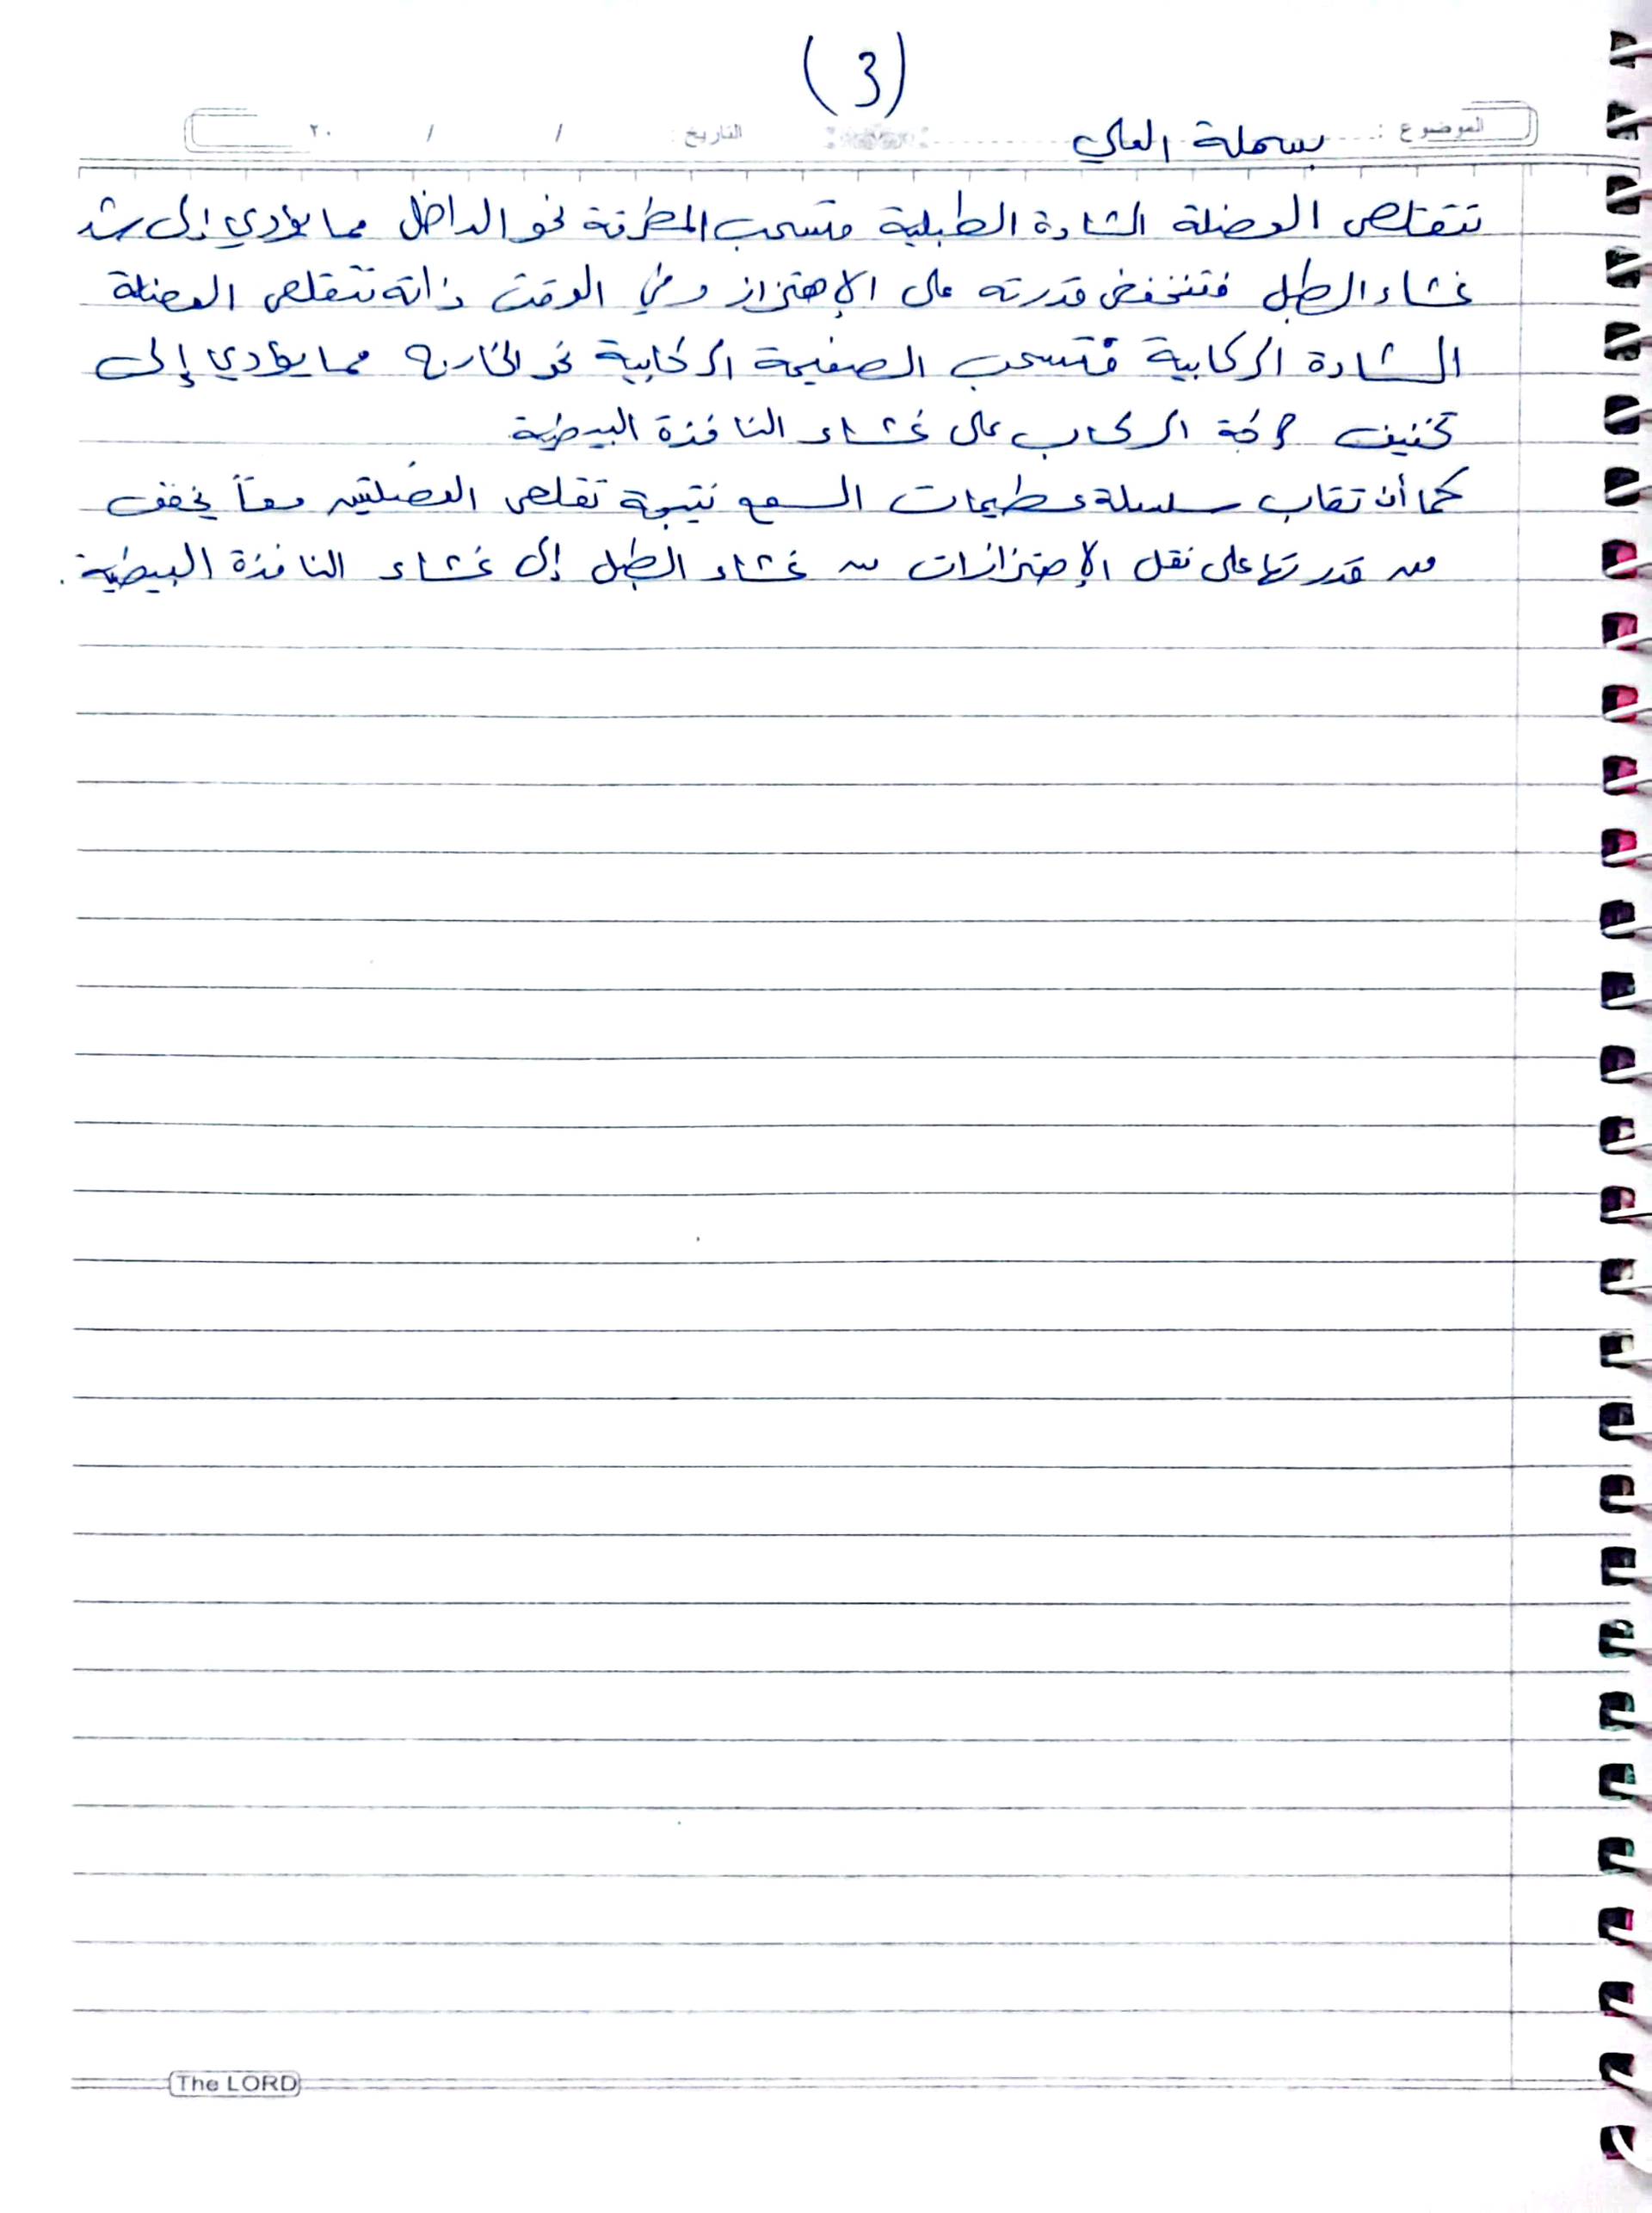 (3)
الموضوع : بسملة العلي التاريخ : / / ٢٠
تتقلص العضلة الشادة الطبلية فتسحب المطرقة نحو الداخل مما يؤدي إلى شد
غشاء الطبل فتنخفض قدرته على الإهتزاز وفي الوقت ذاته تتقلص العضلة
الشادة الركابية فتسحب الصفيحة الركابية نحو الخارج مما يؤدي إلى
تخفيف حركة الركاب على غشاء النافذة البيضية
كما أن تقارب سلسلة عظيمات السمع نتيجة تقلص العضلتين معاً يخفف
من قدرتها على نقل الإهتزازات من غشاء الطبل إلى غشاء النافذة البيضية.
The LORD